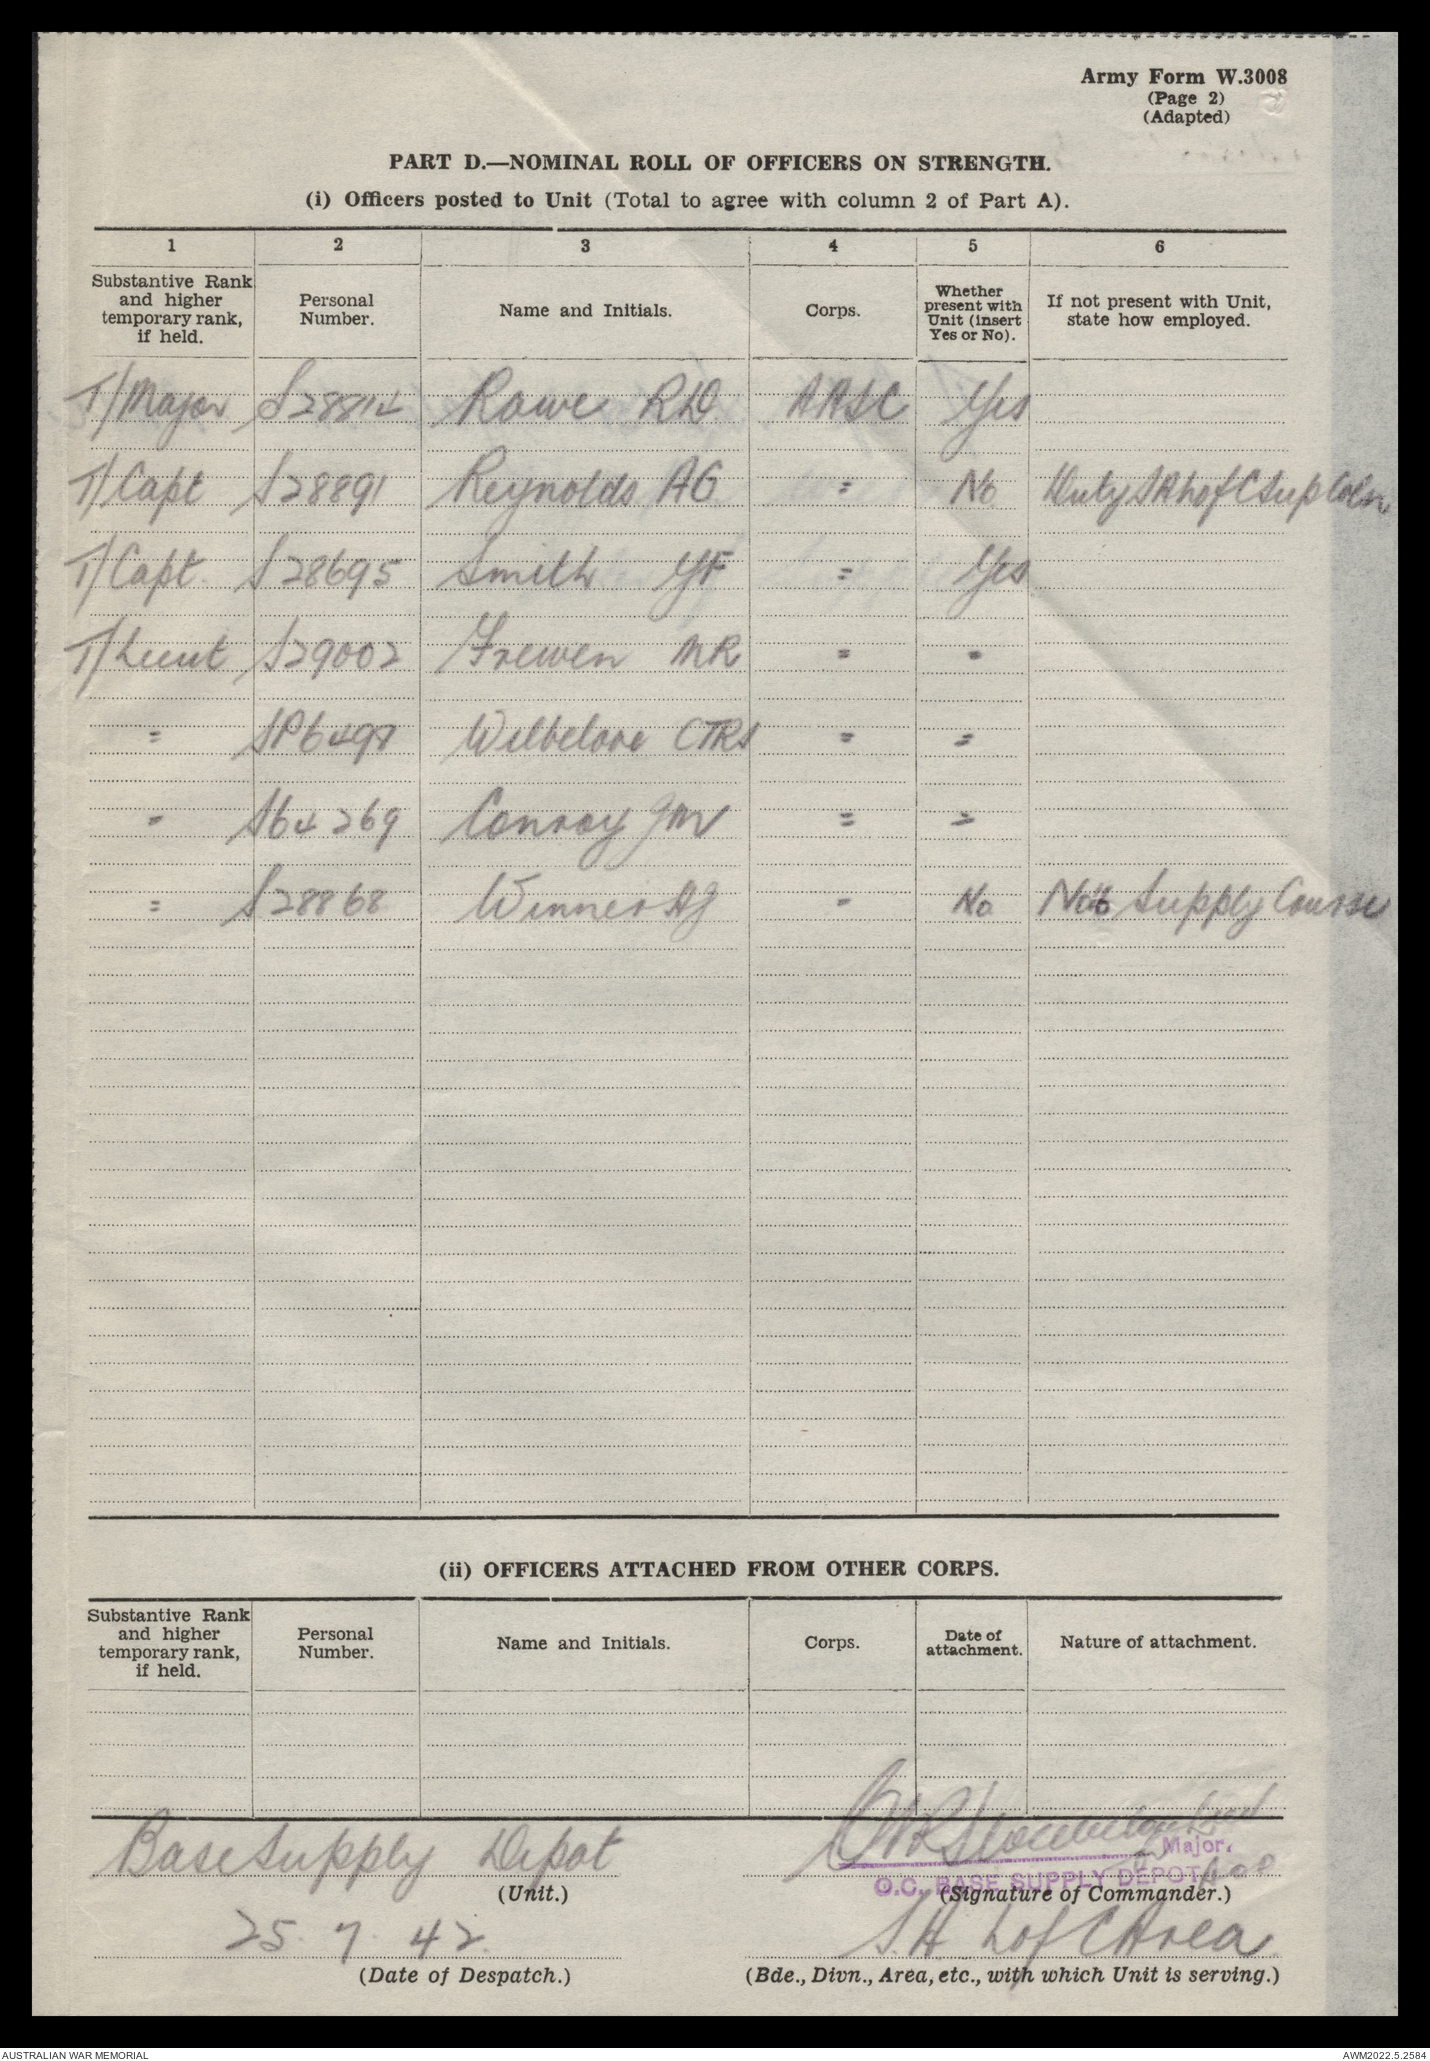 Army Form W.3008
(Page 2)
(Adapted)
PART D.—NOMINAL ROLL OF OFFICERS ON STRENGTH.
(i) Officers posted to Unit (Total to agree with column 2 of Part A).
1 2 3 4 5 6
Substantive Rank and higher temporary rank, if held. Personal Number. Name and Initials. Corps. Whether present with Unit (insert Yes or No). If not present with Unit, state how employed.
T/Major S28814 Rowe RD AASC Yes
T/Capt S28891 Reynolds AG = No Duty SA LofC Sup Coln
T/Capt S28695 Smith YF = Yes
T/Lieut S29002 Frewen MR = =
= SP6497 Welbelove CTRS = =
= S64269 Conroy JM = =
= S28868 Winner AJ = No No6 Supply Course
(ii) OFFICERS ATTACHED FROM OTHER CORPS.
Substantive Rank and higher temporary rank, if held. Personal Number. Name and Initials. Corps. Date of attachment. Nature of attachment.
Base Supply Depot
Major.
O.C. BASE SUPPLY DEPOT
(Unit.) (Signature of Commander.)
25. 7. 42. S.A. LofC Area
(Date of Despatch.) (Bde., Divn., Area, etc., with which Unit is serving.)
AUSTRALIAN WAR MEMORIAL AWM2022.5.2584